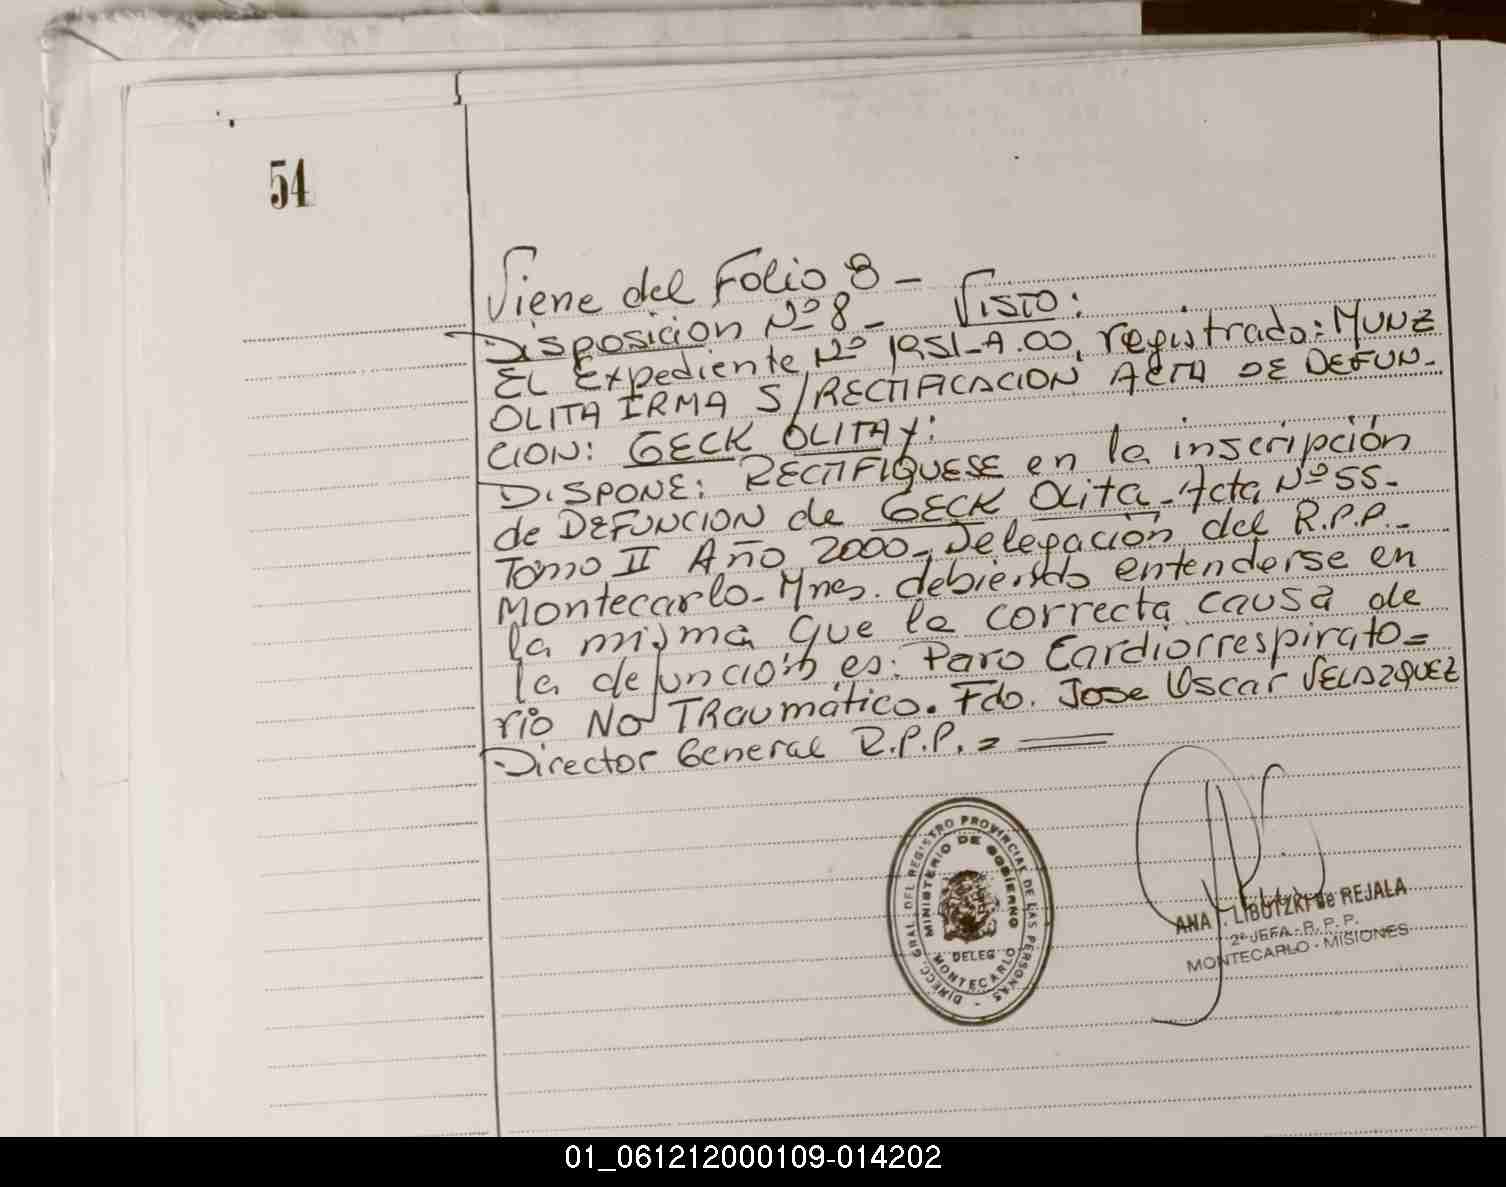 54
Viene del Folio 8 -
Disposicion Nº 8 - VISTO:
El Expediente Nº 1951-A.00, registrado: MUNZ
OLITA IRMA S/RECTIFICACION ACTA DE DEFUN-
CION: GECK OLITA Y:
DISPONE: RECTIFIQUESE en la inscripción
de DEFUNCION de GECK OLita - Acta Nº 55 -
Tomo II Año 2000 - Delegación del R.P.P. -
Montecarlo - Mnes. debiendo entenderse en
la misma que la correcta causa de
la defunción es: Paro Cardiorrespirato=
rio No TRaumático. Fdo. Jose Oscar VELAZQUEZ
Director General R.P.P. =
DIRECC. GRAL. DEL REGISTRO PROVINCIAL DE LAS PERSONAS -
MINISTERIO DE GOBIERNO
DELEG
MONTECARLO
ANA LIBUTZKI de REJALA
2º JEFA - R. P. P.
MONTECARLO - MISIONES
01_061212000109-014202